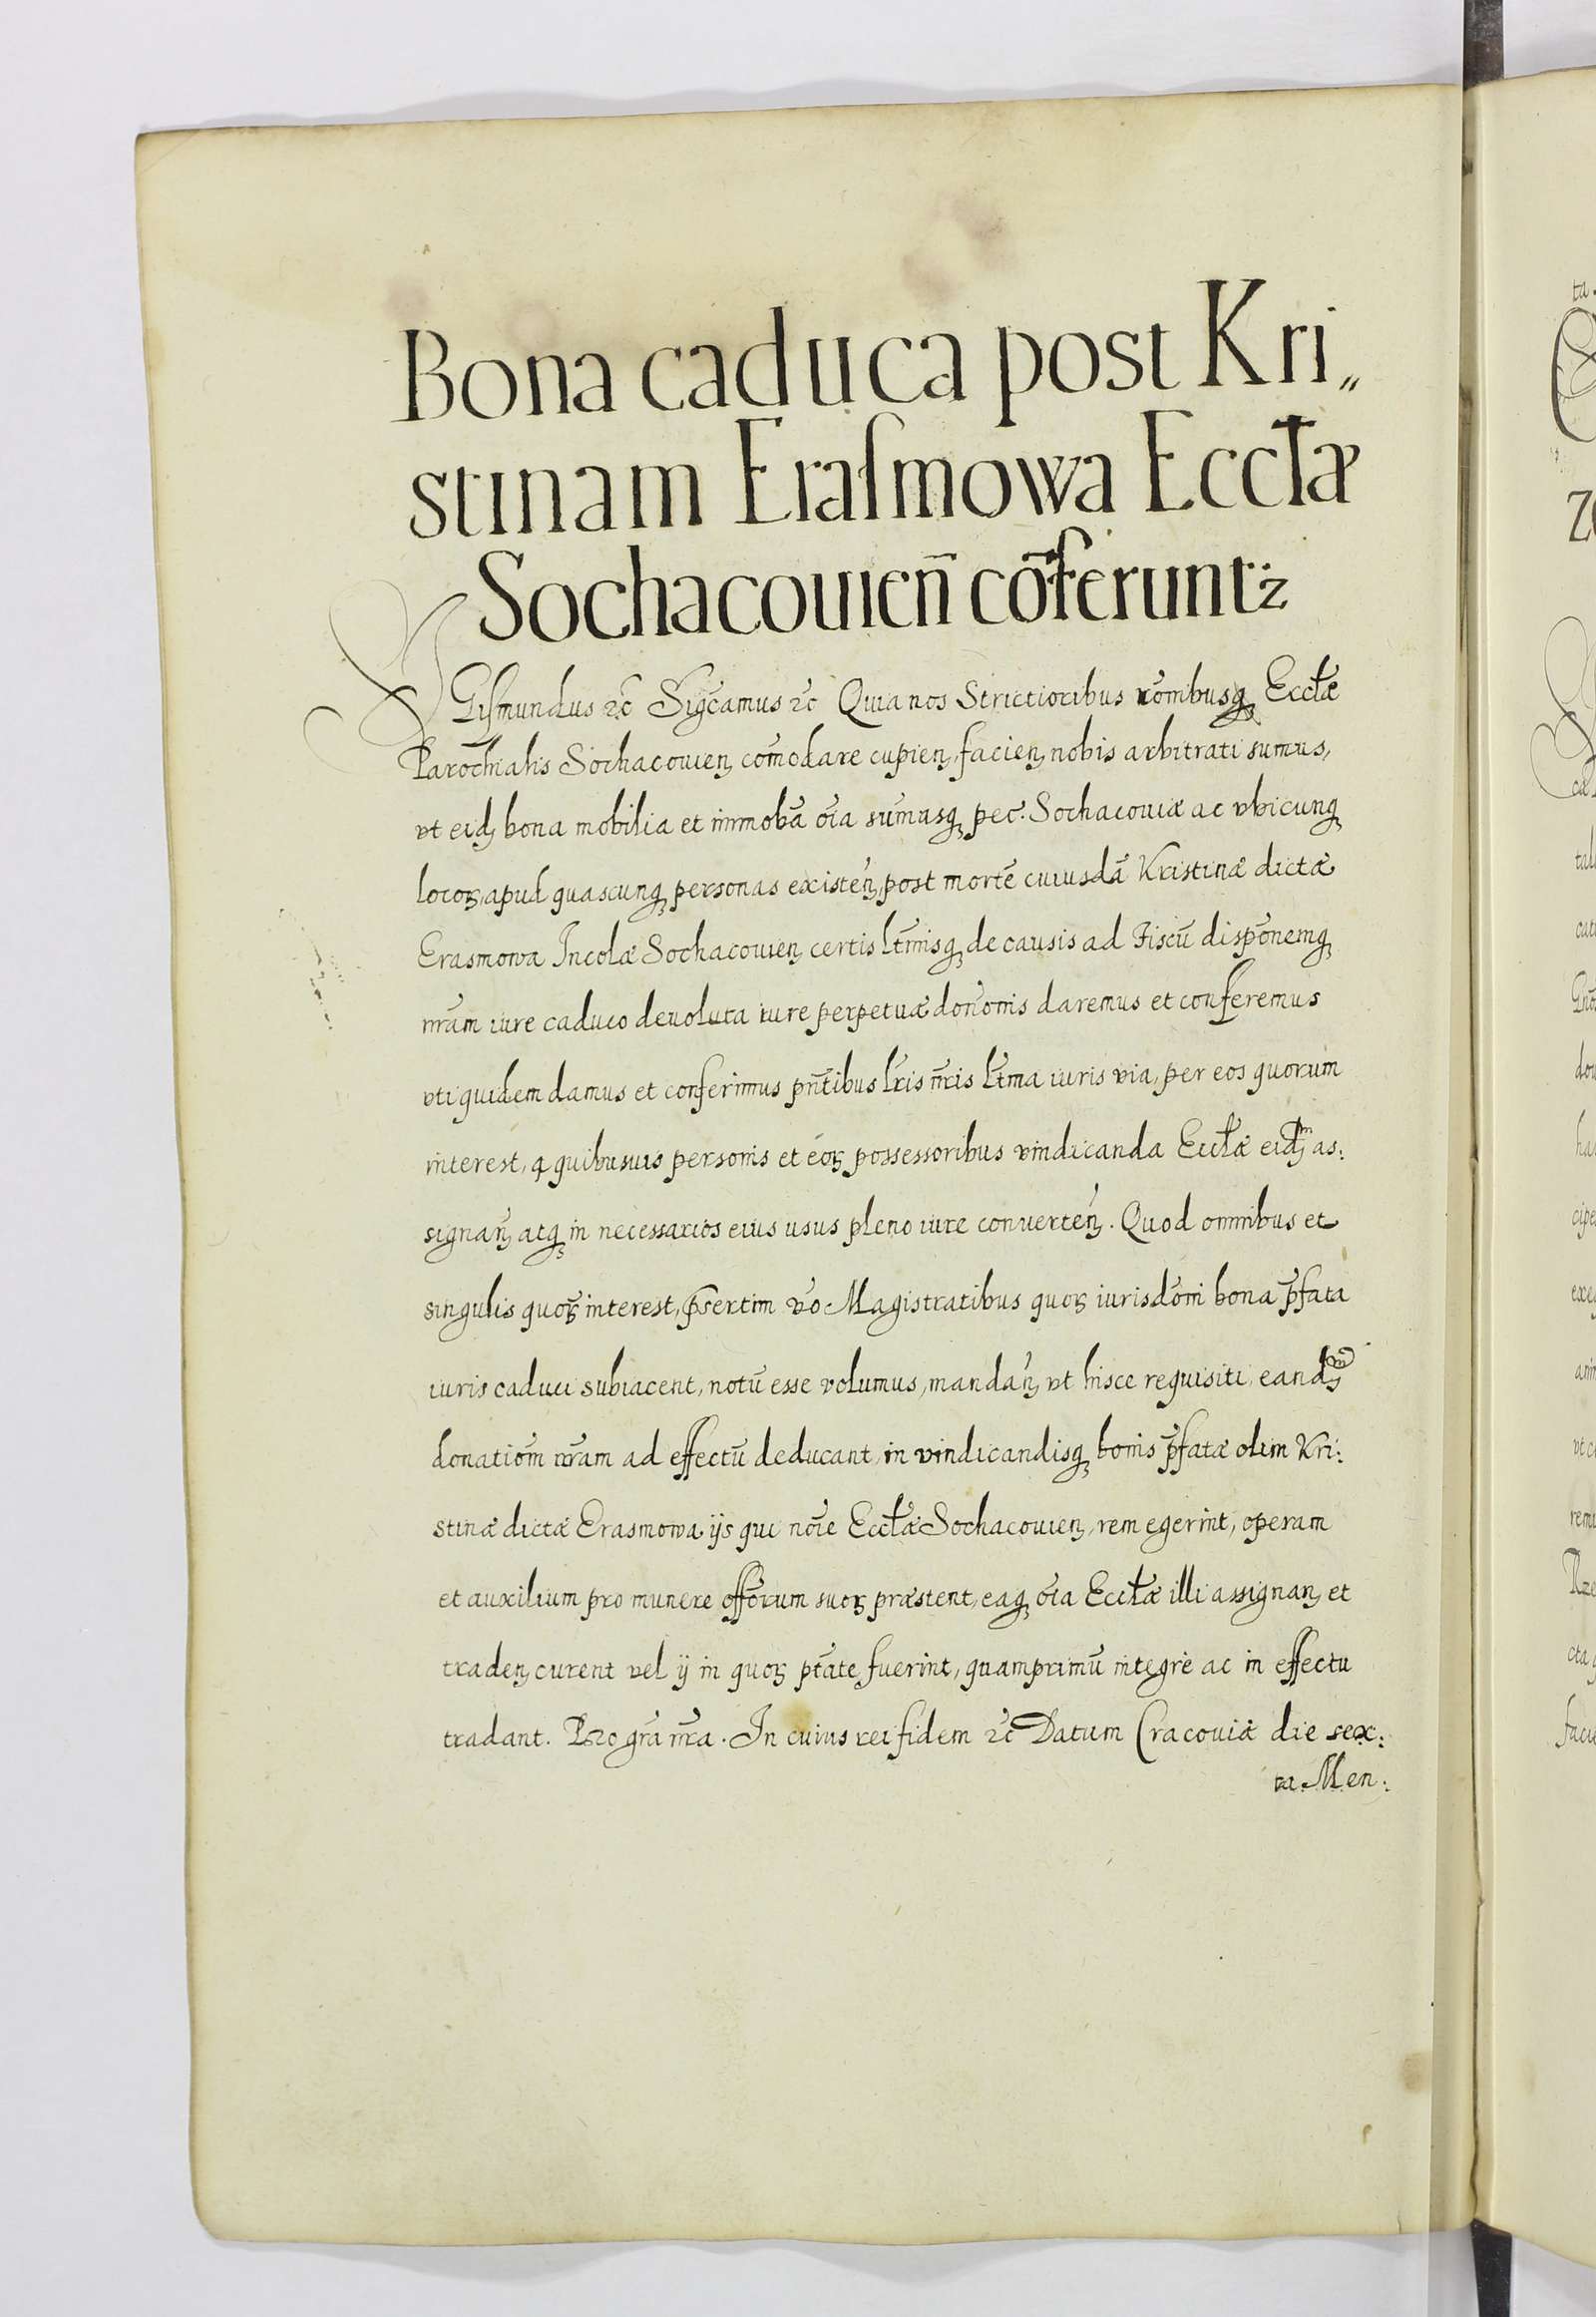 Bona caduca post Kri„
stinam Eraſmowa Eccłæ
Sochacouien̄ cōferunt:z
SIGiſmundus ꝛc̄ Sigc̄amus ꝛc̄ Quia nos Strictioribus rōnibusq₃ Eccłæ
Parochialis Sochacouien̨ com̄odare cupien̨, facien̨ nobis arbitrati sumus,
vt eid̨ bona mobilia et immobā oīa sum̄asq₃ pec: Sochacouiæ ac vbicunq₃
locoꝝ, apud quascunq₃ personas existen̨, post mortē cuiusdā Kristinæ dictæ
Erasmowa Incolæ Sochacouien̨ certis łtīmisq₃ de causis ad Fiscū dispōnemq₃
nr̄am iure caduco deuoluta iure perpetuæ donōnis daremus et conferemus
vti quidem damus et conferimus pn̄tibus łris nr̄is łtīma iuris via, per eos quorum
interest, a quibusuis personis et eoꝝ possessoribus vindicanda Eccłæ eid̨ᵐ as:
signan̨ atq₃ in necessarios eius usus pleno iure conuerten̨. Quod omnibus et
singulis quoꝝ interest, p̄sertim v̄o Magistratibus quoꝝ iurisdōni bona p̄fata
iuris caduci subiacent, notū esse volumus, mandan̨ vt hisce requisiti, eand̨ᵐ
donatiōm nr̄am ad effectū deducant, in vindicandisq₃ bonis p̄fatæ olim Kri:
stinæ dictæ Erasmowa ijs qui noīe Eccłæ Sochacouien̨, rem egerint, operam
et auxilium pro munere offōrum suoꝝ præstent, eaq₃ oīa Eccłæ illi assignan̨ et
traden̨ curent vel ij in quoꝝ ptāte fuerint, quamprimū integrè ac in effectu
tradant. Pro grā nr̄a. In cuius rei fidem ꝛc̄ Datum Cracouiæ die sex:
ta Men: